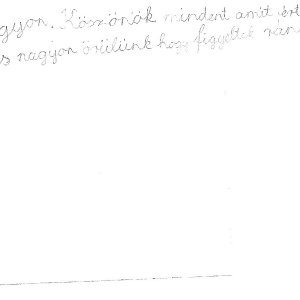 gyon. Köszönök mindent amit ért
s nagyon örülünk hogy figyeltek rán